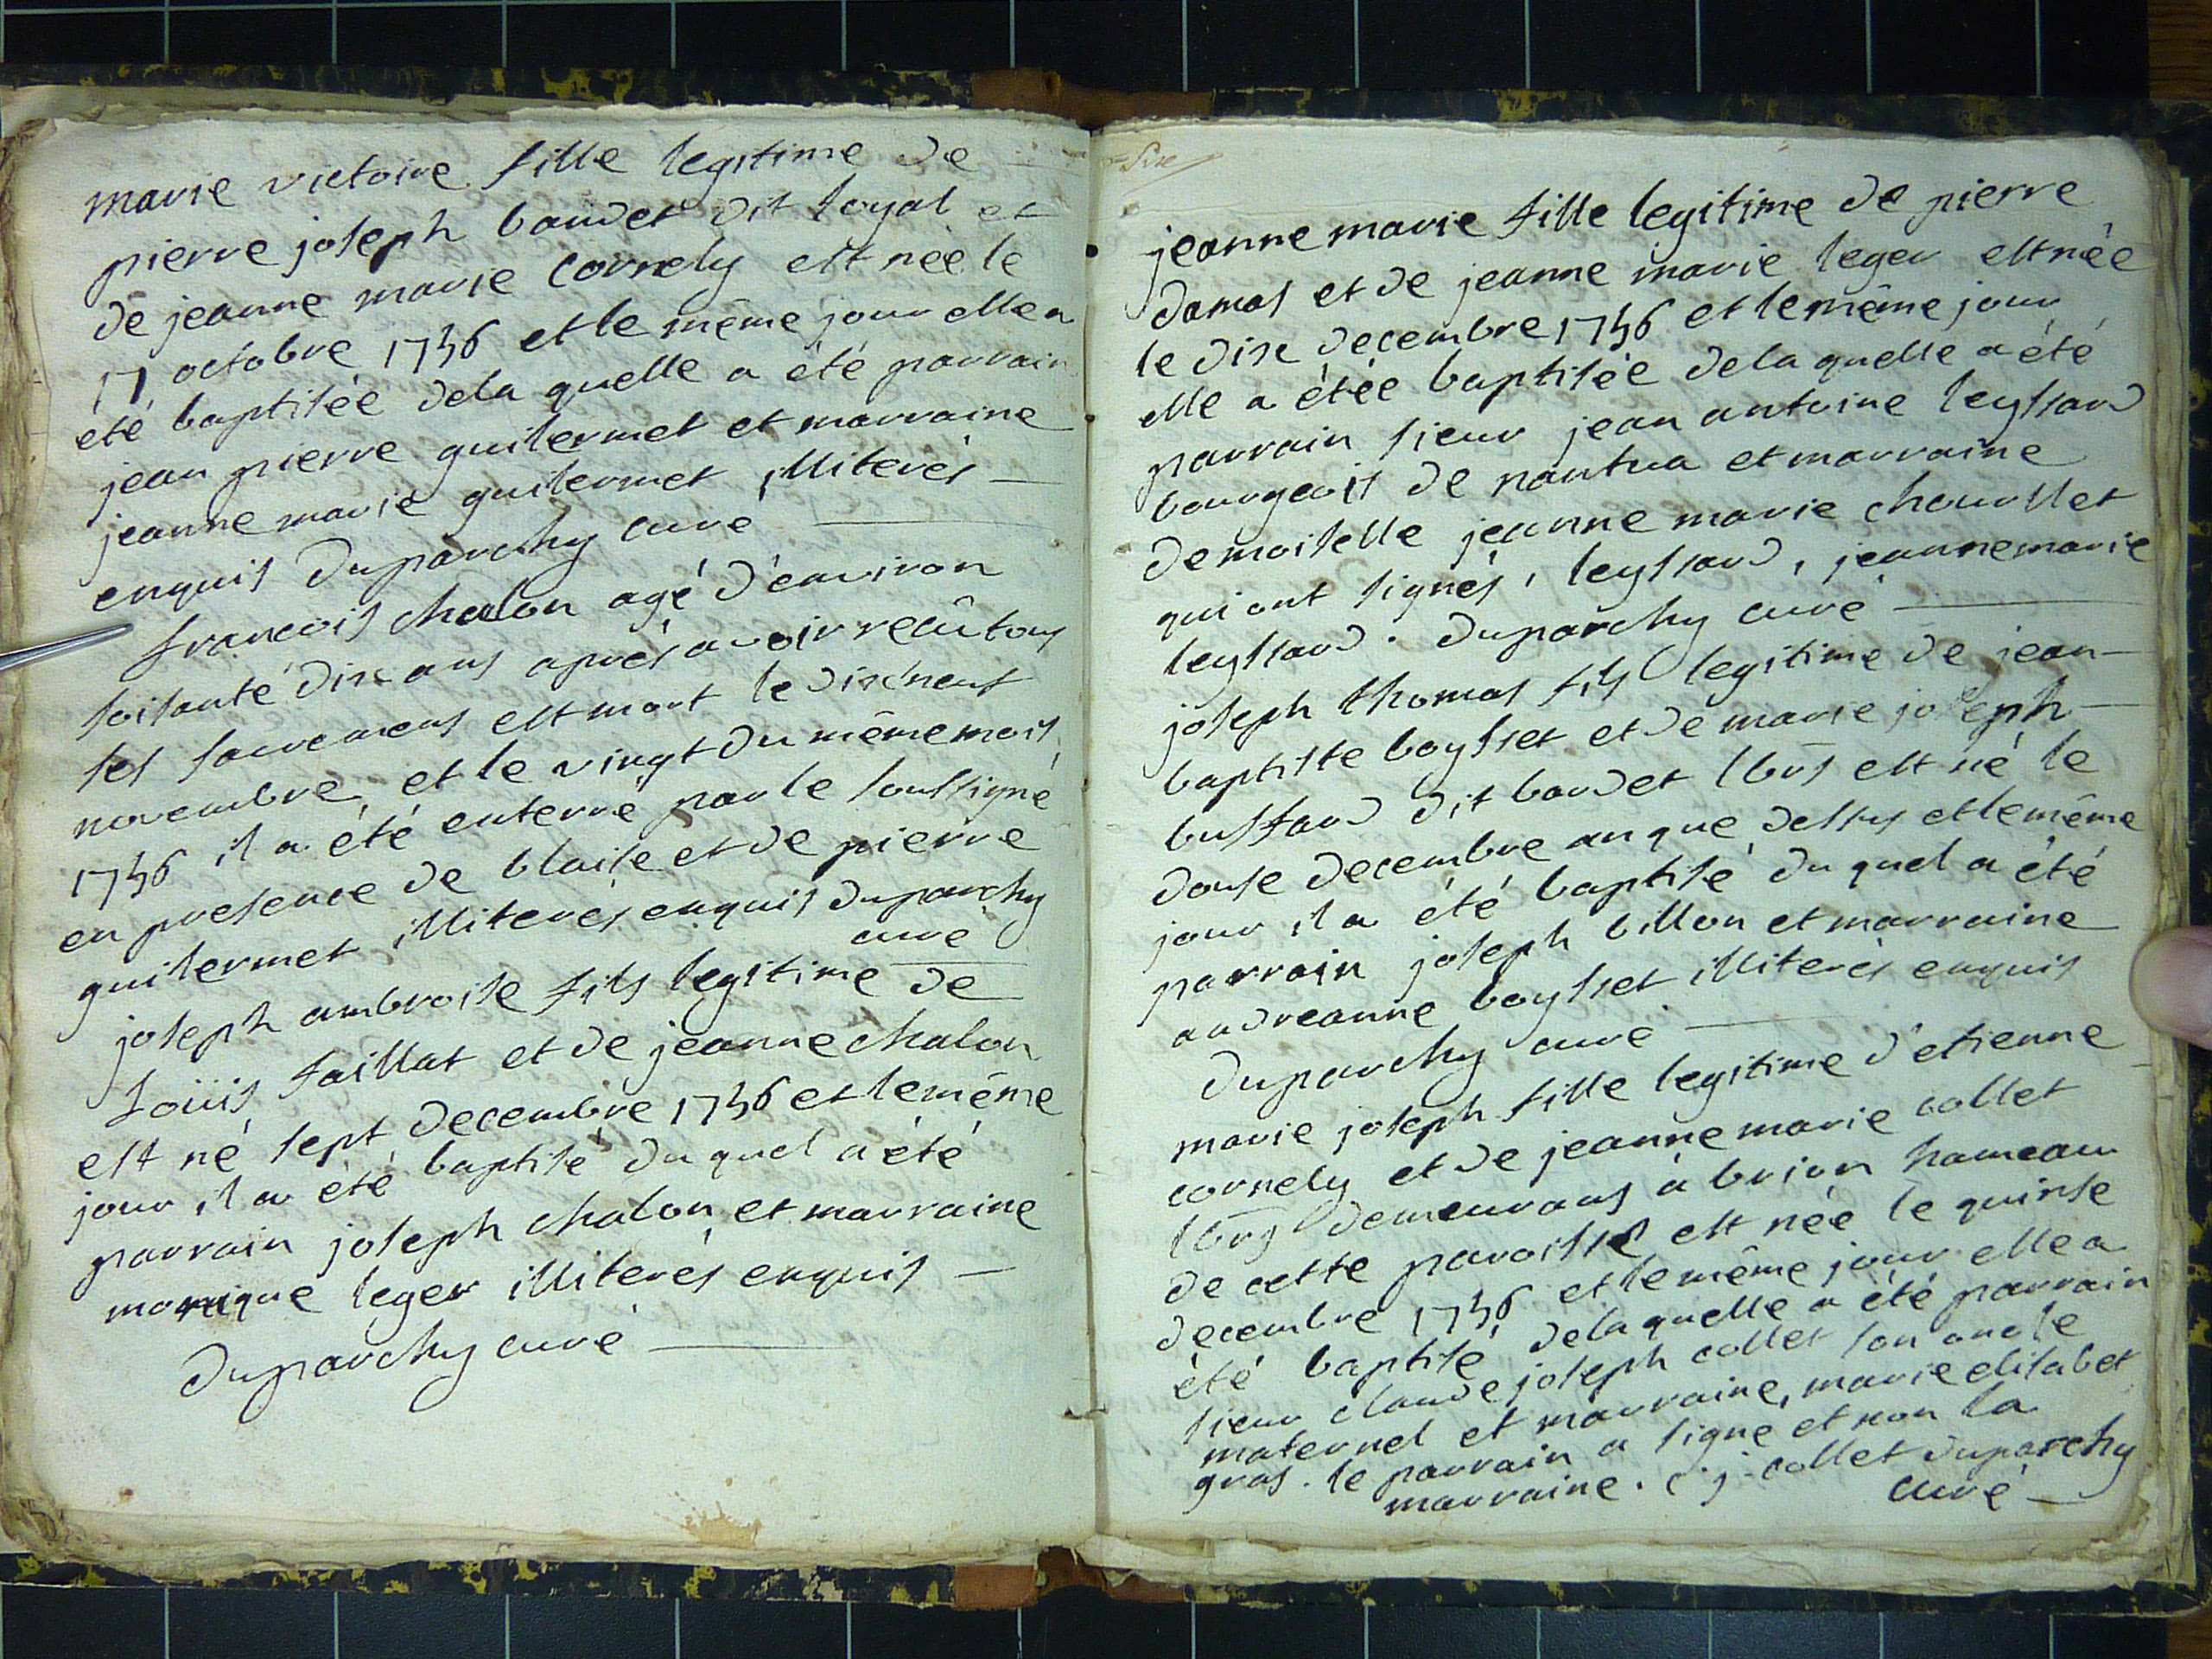 marie victoire fille legitime de
pierre joseph baudet dit loyal et
de jeanne marie cornely est née le
17 octobre 1756 et le même jour elle a
eté baptisée dela quelle a été parrain
jean pierre guilermet et marraine
jeanne marie guilermet illiterés
enquis duparchy curé
francois chalon agé d'environ
soisante dix ans aprés avoir recû tous
ses sacremens est mort le dixneuf
novembre, et le vingt du même mois
1756 il a été enterré par le soussigné
en presence de blaise et de pierre
guilermet illiterés enquis duparchy
curé
joseph ambroise fils legitime de
Loüis faillat et de jeanne chalon
est né sept decembre 1756 et le même
jour il a été baptisé du quel a été
parrain joseph chalon et marraine
monique leger illiterés enquis
duparchy curé
jeanne marie fille legitime de pierre
damas et de jeanne marie leger est née
le dix decembre 1756 et le même jour
elle a étée baptisée dela quelle a été
parrain sieur jean antoine leyssard
bourgeois de nantua et marraine
demoiselle jeanne marie chourllet
qui ont signés, leyssard, jeanne marie
leyssard. duparchy curé
joseph thomas fils legitime de jean
baptiste boysset et de marie joseph
bussard dit baudet lbrs est né le
douse decembre an que dessus et le même
jour il a été baptisé du quel a été
parrain joseph billon et marraine
andreanne boysset illiterés enquis
duparchy curé
marie joseph fille legitime d'etienne
cornely et de jeanne marie collet
lbrs demeurans à brion hameau
de cette paroisse est née le quinse
decembre 1756 et le même jour elle a
été baptisé dela quelle a été parrain
sieur claude joseph collet son oncle
maternel et marraine, marie elisabet
gras. le parrain a signe et non la
marraine. c. j. collet duparchy
curé